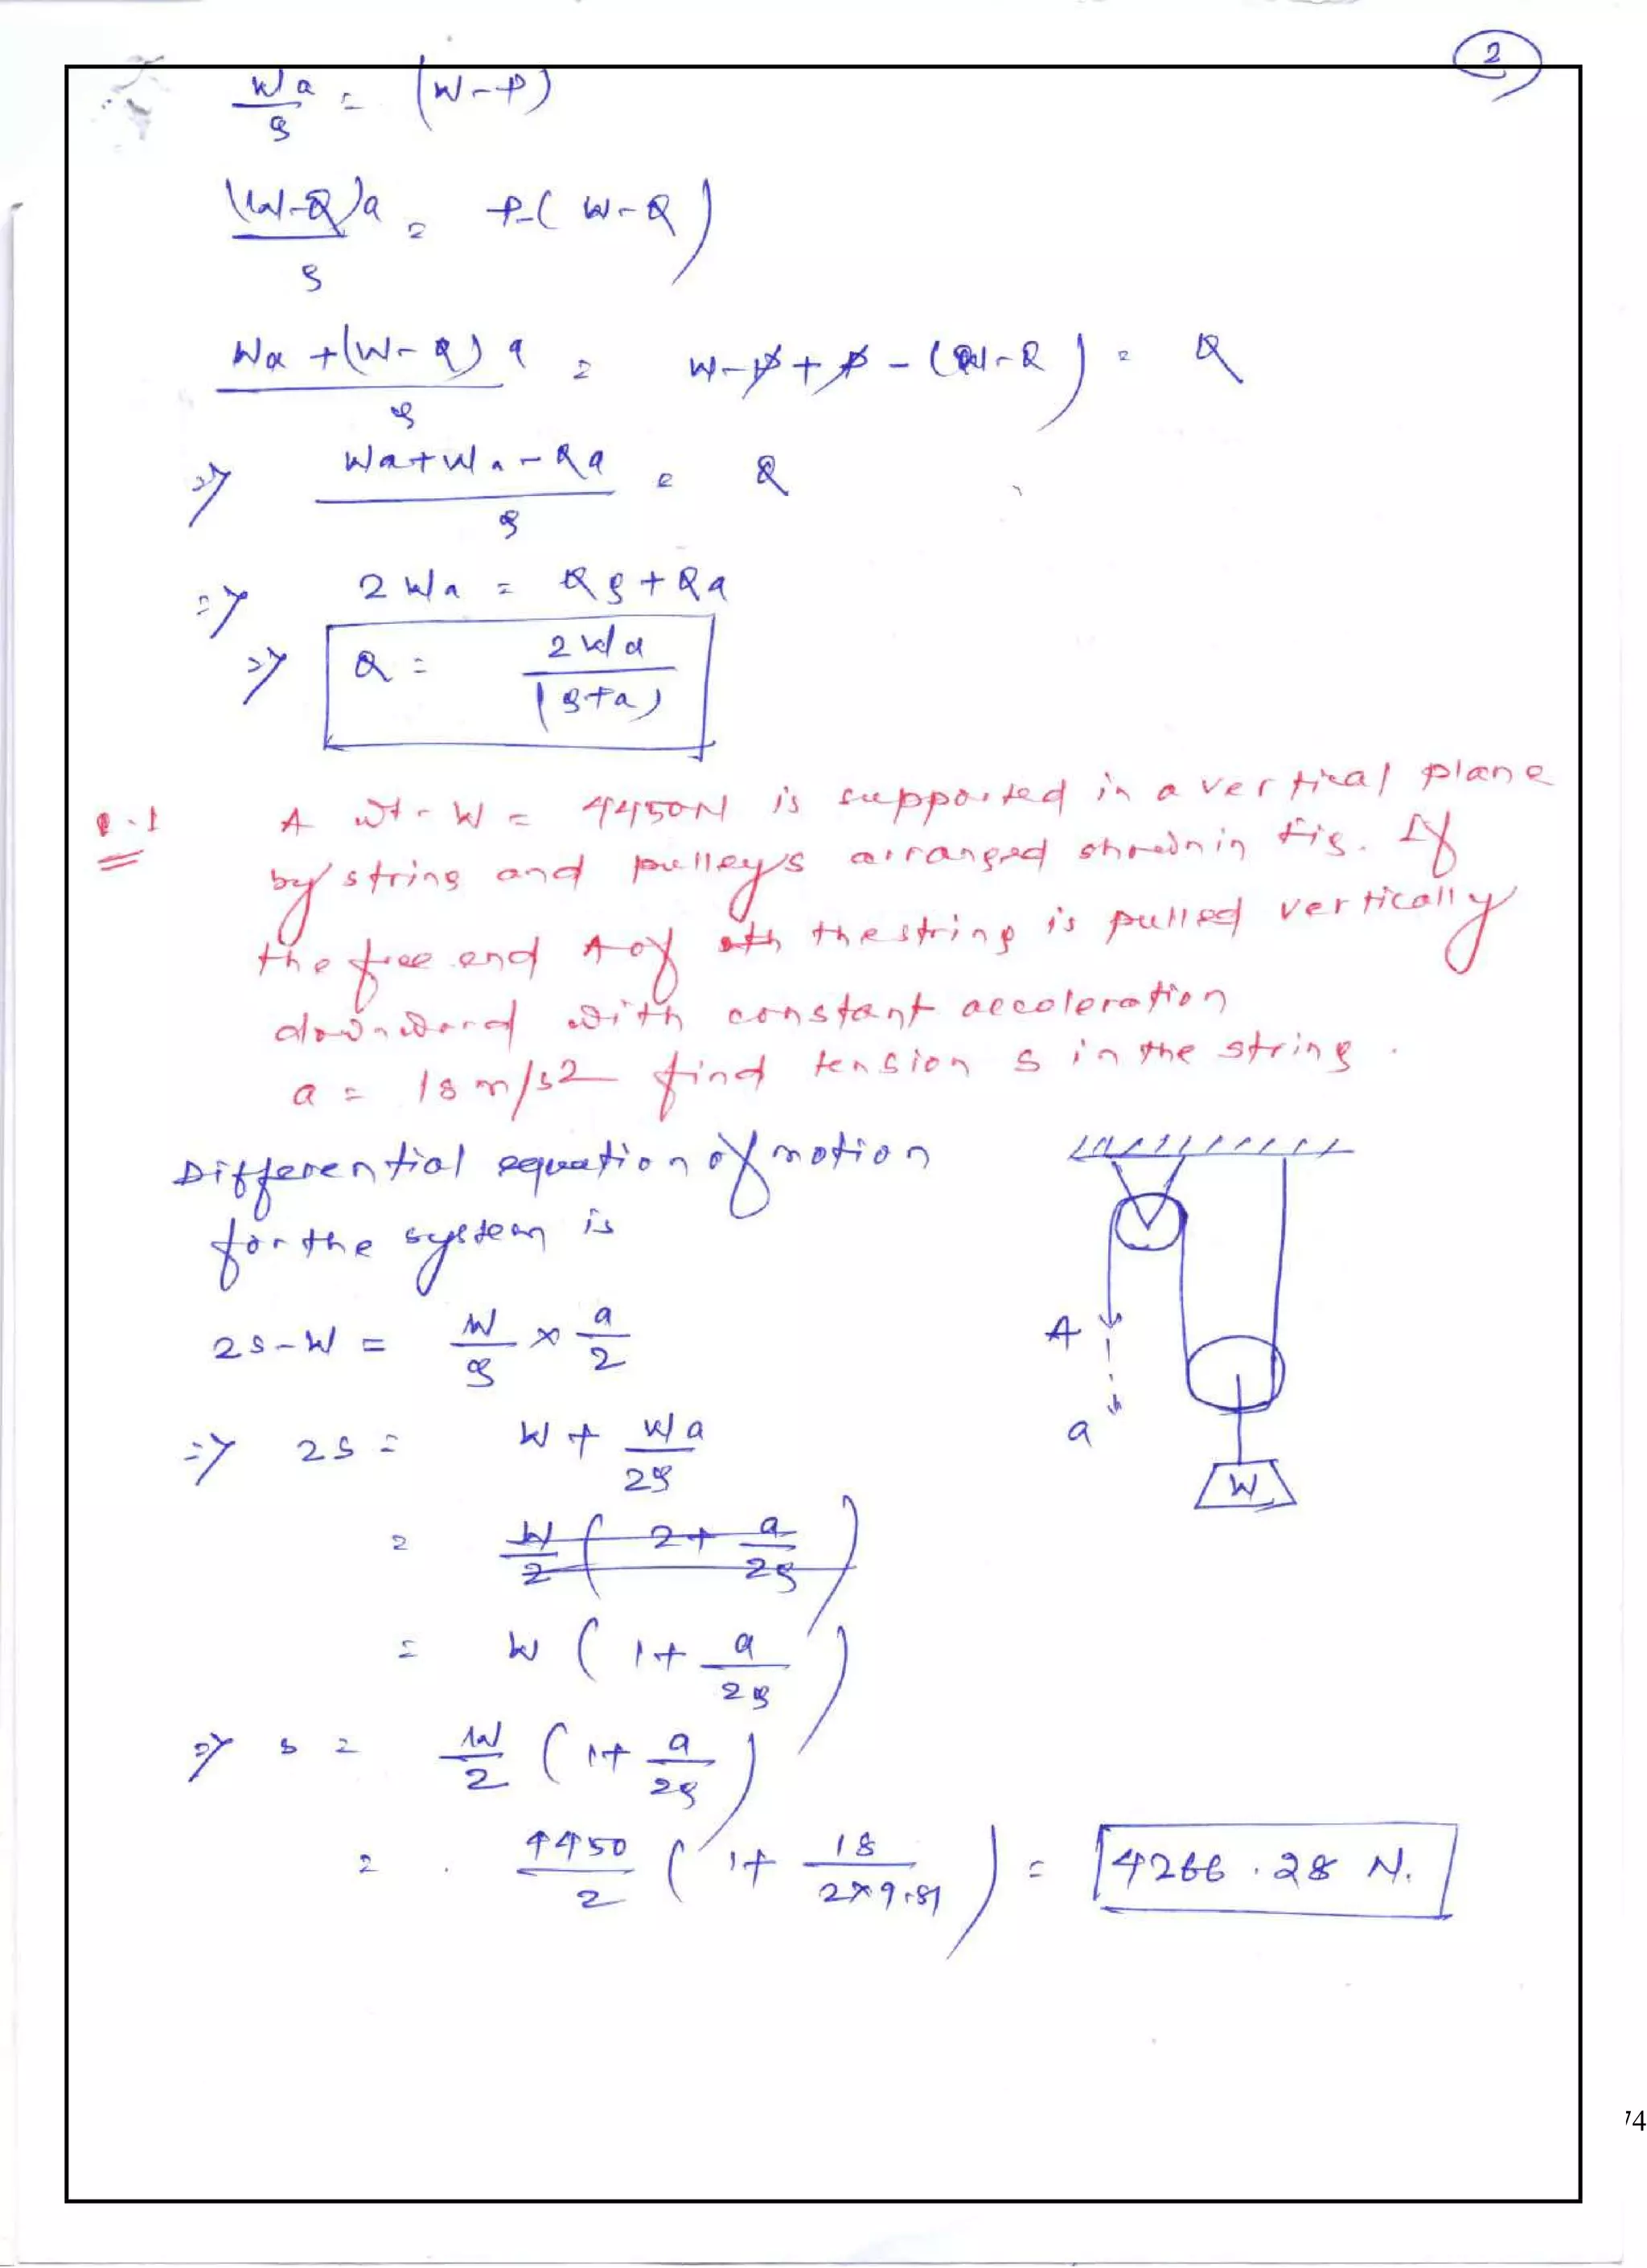 2
Wa/g = (W-P)
(W-Q)a/g = P-(W-Q)
Wa+(W-Q)a/g = W-P+P-(W-Q) = Q
=> Wa+Wa-Qa/g = Q
=> 2Wa = Qg+Qa
=> Q = 2Wa/(g+a)
A wt. W = 4450N is supported in a vertical plane
by string and pulleys arranged shown in fig. If
the free end A of the string is pulled vertically
downward with constant acceleration
a = 18 m/s2 find tension S in the string.
Differential equation of motion
for the system is
2S-W = W/g × a/2
=> 2S = W + Wa/2g
= W/2 (2+ a/2g)
= W (1+ a/2g)
=> S = W/2 (1+ a/2g)
= 4450/2 (1+ 18/2×9.81) = 4266.28 N.
A
a
W
74